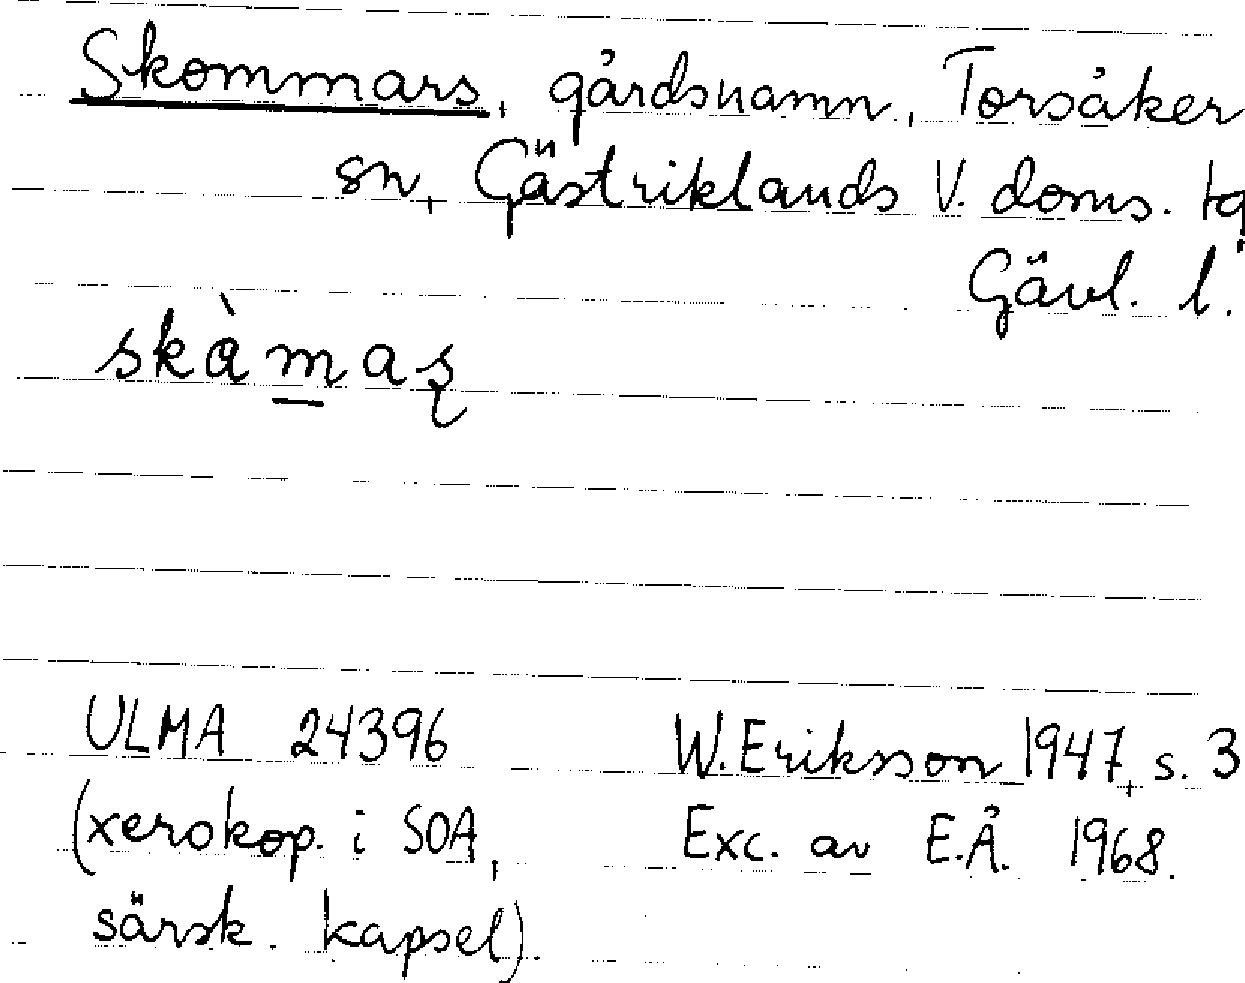 Skommars, gårdsnamn, Torsåker
sn, Gästriklands V. doms. tg
Gävl. l.
skàmaʂ
ULMA 24396 W. Eriksson 1947, s. 3
(xerokop. i SOA, Exc. av E.Å. 1968.
särsk. kapsel).